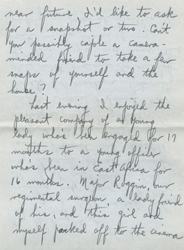 near future I'd like to ask
for a snapshot or two. Can't
you possibly cajole a camera-
minded friend to take a few
snaps of yourself and the
house?
Last evening I enjoyed the
pleasant company of a young
lady who's been engaged for 17
months to a young officer
who's been in East Africa for
16 months. Major Roggin, our
regimental surgeon, a lady friend
of his, and this girl and
myself packed off to the arena